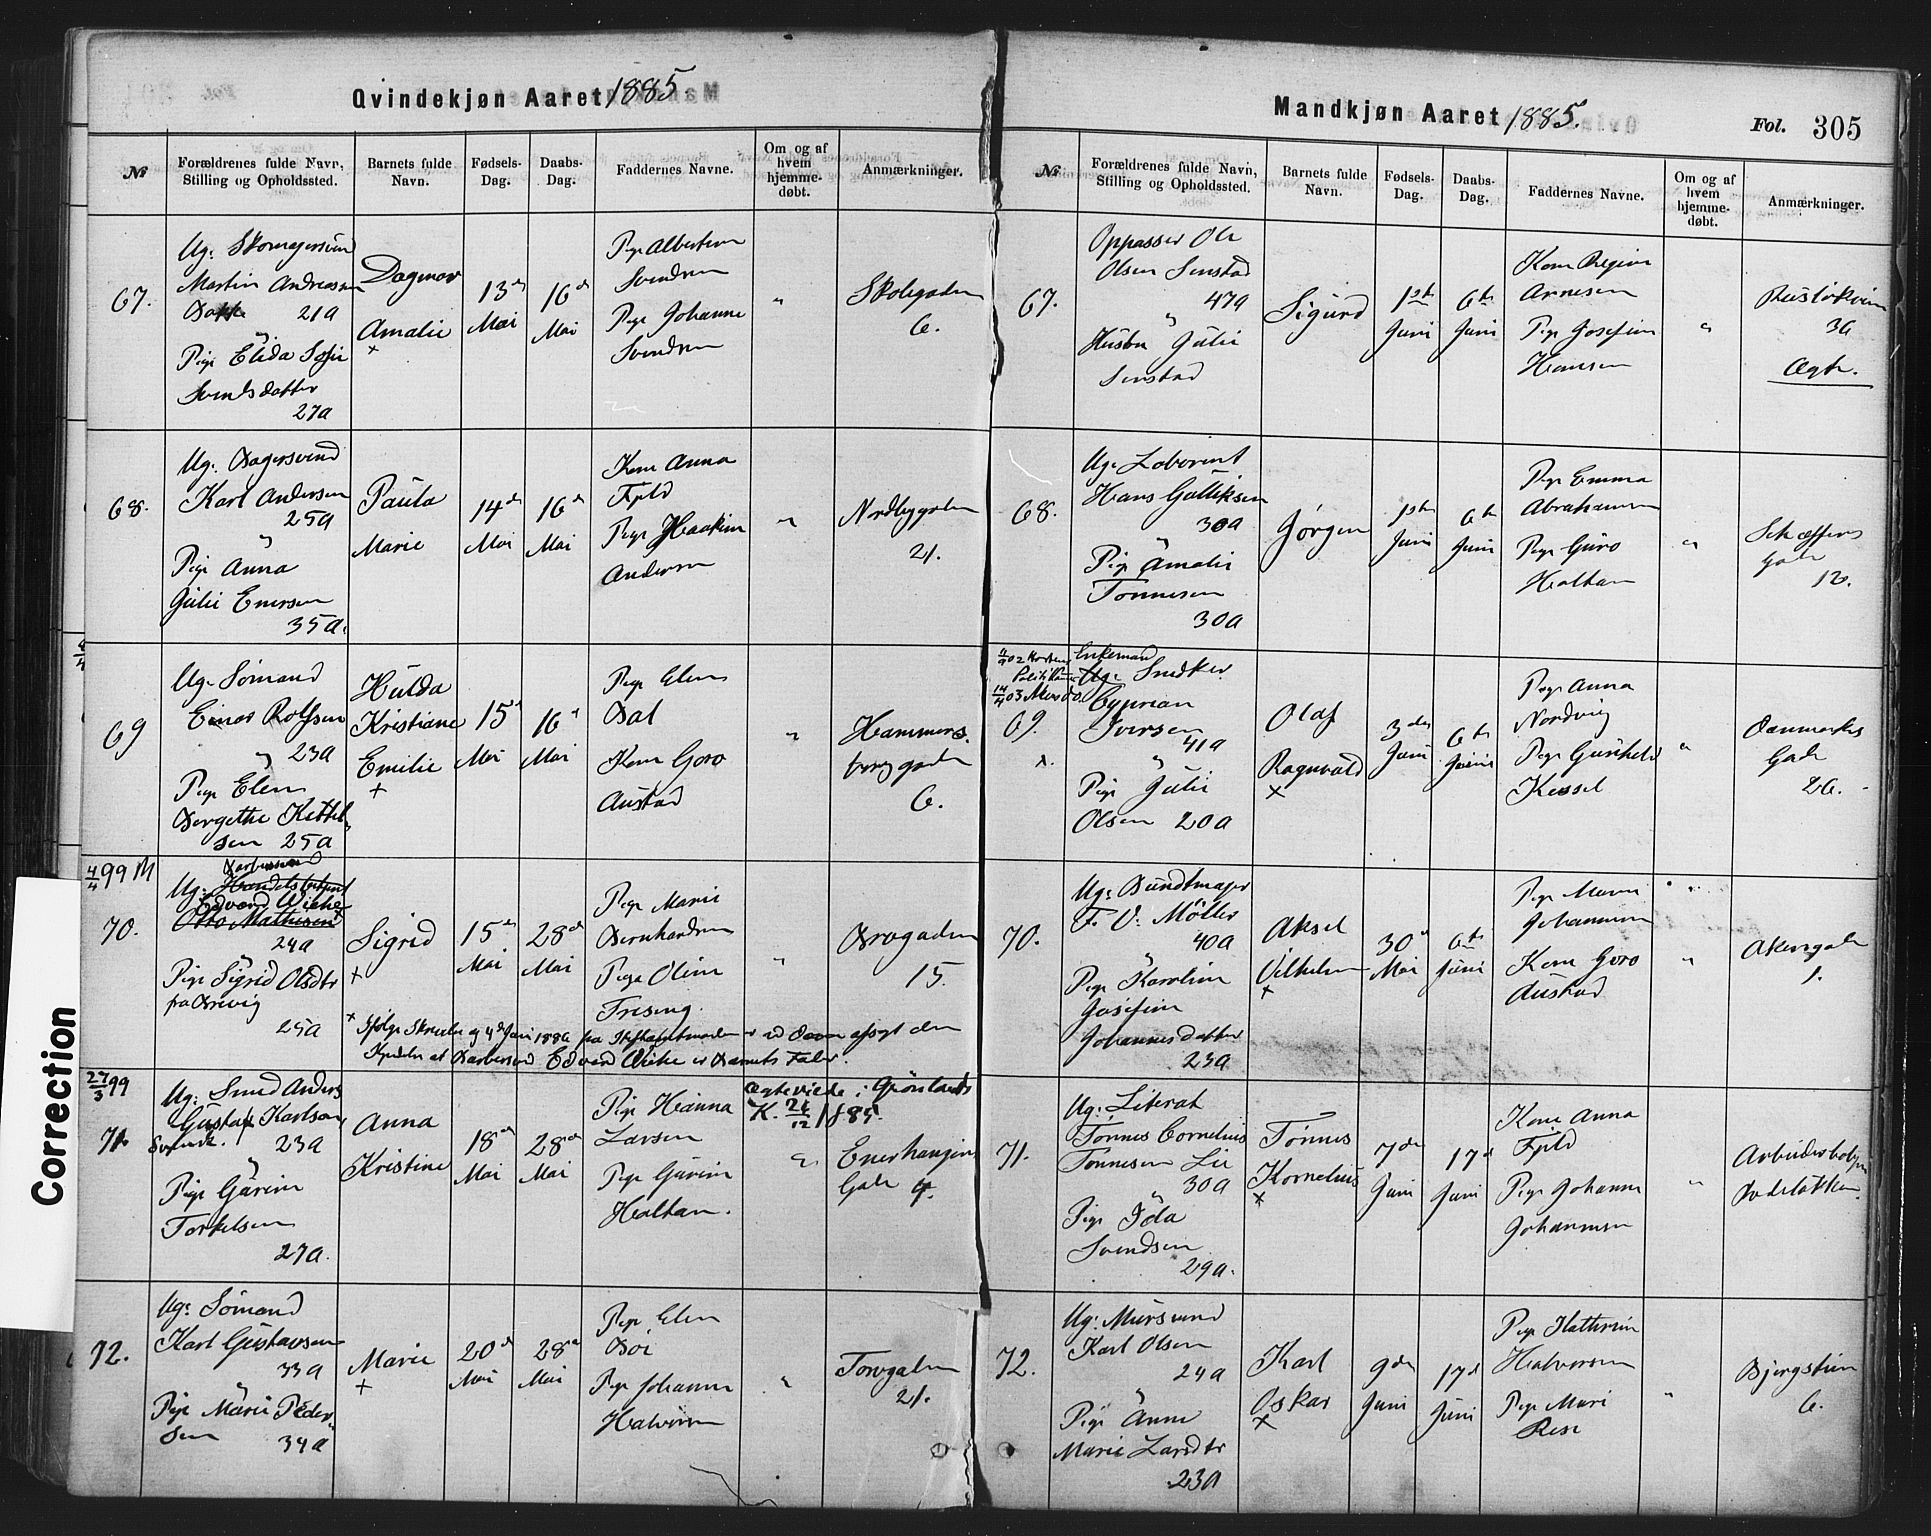 Qvindekjøn Aaret 1885
№
Forældrenes fulde Navn,
Stilling og Opholdssted.
Barnets fulde
Navn.
Fødsels-
Dag.
Daabs-
Dag.
Faddernes Navne.
Om og af
hvem
hjemme-
døbt.
Anmærkninger.
67.
Ug. Skomagersvend
Martin Andreassen
21a
"
Pige Elida Sofie
Svendsdatter
27a
Dagmar
Amalie
x
13de
Mai
16de
Mai
Pige Albertine
Svendsen
Pige Johanne
Svendsen
"
Skolegaden
6.
68.
Ug. Bagersvend
Karl Andersen
25a
"
Pige Anna
Julie Enersen
35a.
Paula
Marie
14de
Mai
16de
Mai
Kone Anna
Fjeld
Pige Haakine
Andersen
"
Nordbygaden
21.
69
Ug. Sømand
Einar Rolfsen
23a
"
Pige Elen
Bergethe Kittel-
sen 25a
Hulda
Kristiane
Emilie
x
15de
Mai
16de
Mai
Pige Elen
Dal
Kone Goro
Austad
"
Hammers-
borggade
6.
4/4 99 M
70.
Ug:
Edvard Wiche
Otto Mathisen
24a
"
Pige Sigrid Olsdtr
fra Brevig
25a
Sigrid
x
15de
Mai
28de
Mai
Pige Marie
Bernhardsen
Pige Oline
Fresing.
"
Brogaden
15.
x Ifølge Skrivelse af 4de Juni 1886 fra Stiftamtmanden er ved Dom afsagt den
Kjendelse at Edvard Wiche er Barnets Fader.
27/3 99
71.
Ug: Smed Anders
Gustaf Karlson,
Svensk. 23a
"
Pige Gurine
Torkelsen
27a.
Anna
Kristine
18de
Mai
28de
Mai
Pige Hanna
Larsen
Pige Gurine
Holtan.
"
Ægteviede i Grønlands
K. 26/12 1885.
Enerhaugens
Gade 4.
72.
Ug: Sømand
Karl Gustavsen
33a
"
Pige Marie Peder-
sen 34a
Marie
x
20de
Mai
28de
Mai
Pige Elen
Boi
Pige Johanne
Halvorsen
"
Torvgaden
21.
Mandkjøn Aaret 1885.
Fol. 305
№
Forældrenes fulde Navn,
Stilling og Opholdssted.
Barnets fulde
Navn.
Fødsels-
Dag.
Daabs-
Dag.
Faddernes Navne.
Om og af
hvem
hjemme-
døbt.
Anmærkninger.
67.
Oppasser Ole
Olsen Senstad
47a
"
Hustru Julie
Senstad
Sigurd
1ste
Juni
6te
Juni
Kone Regine
Arnesen
Pige Josefine
Hansen
"
Ruseløkveien
36
Ægte.
68.
Ug. Laborent
Hans Gulliksen
30a
"
Pige Amalie
Tønnesen
30a
Jørgen
1ste
Juni
6te
Juni
Pige Emma
Abrahamsen
Pige Guro
Holtan
"
Schæffers
gade
12.
4/9 02 Horten
14/4 03
69.
x.
Enkemand
Ug: Snedker
Cyprian
Iversen
41a
"
Pige Julie
Olsen 20a
Olaf
Ragnvald
x
3die
Juni
6te
Juni
Pige Anna
Nordvig
Pige Gunhild
Kessel
"
Danmarks
Gade
26.
70.
Ug: Bundtmager
F. V. Møller
40a
"
Pige Karoline
Josefine
Johannesdatter
23a
Aksel
Vilhelm
x
30de
Mai
6te
Juni
Pige Maren
Johannesen
Kone Goro
Austad
"
Akersgade
1.
71.
Ug: Literat
Tønnes Cornelius
Tønnesen Lie
30a
"
Pige Ida
Svendsen
29a.
Tønnes
Kornelius
x
7de
Juni
17de
Juni
Kone Anna
Fjeld
Pige Johanne
Johannesen
"
Arbeiderbolig
Rodeløkken.
72.
Ug: Mursvend
Karl Olsen
24a
"
Pige Anne
Marie Larsdtr
23a
Karl
Oskar
x
9de
Juni
17de
Juni
Pige Kathrine
Halvorsen
Pige Mari
Røse
"
Bjergstien
6.
Correction